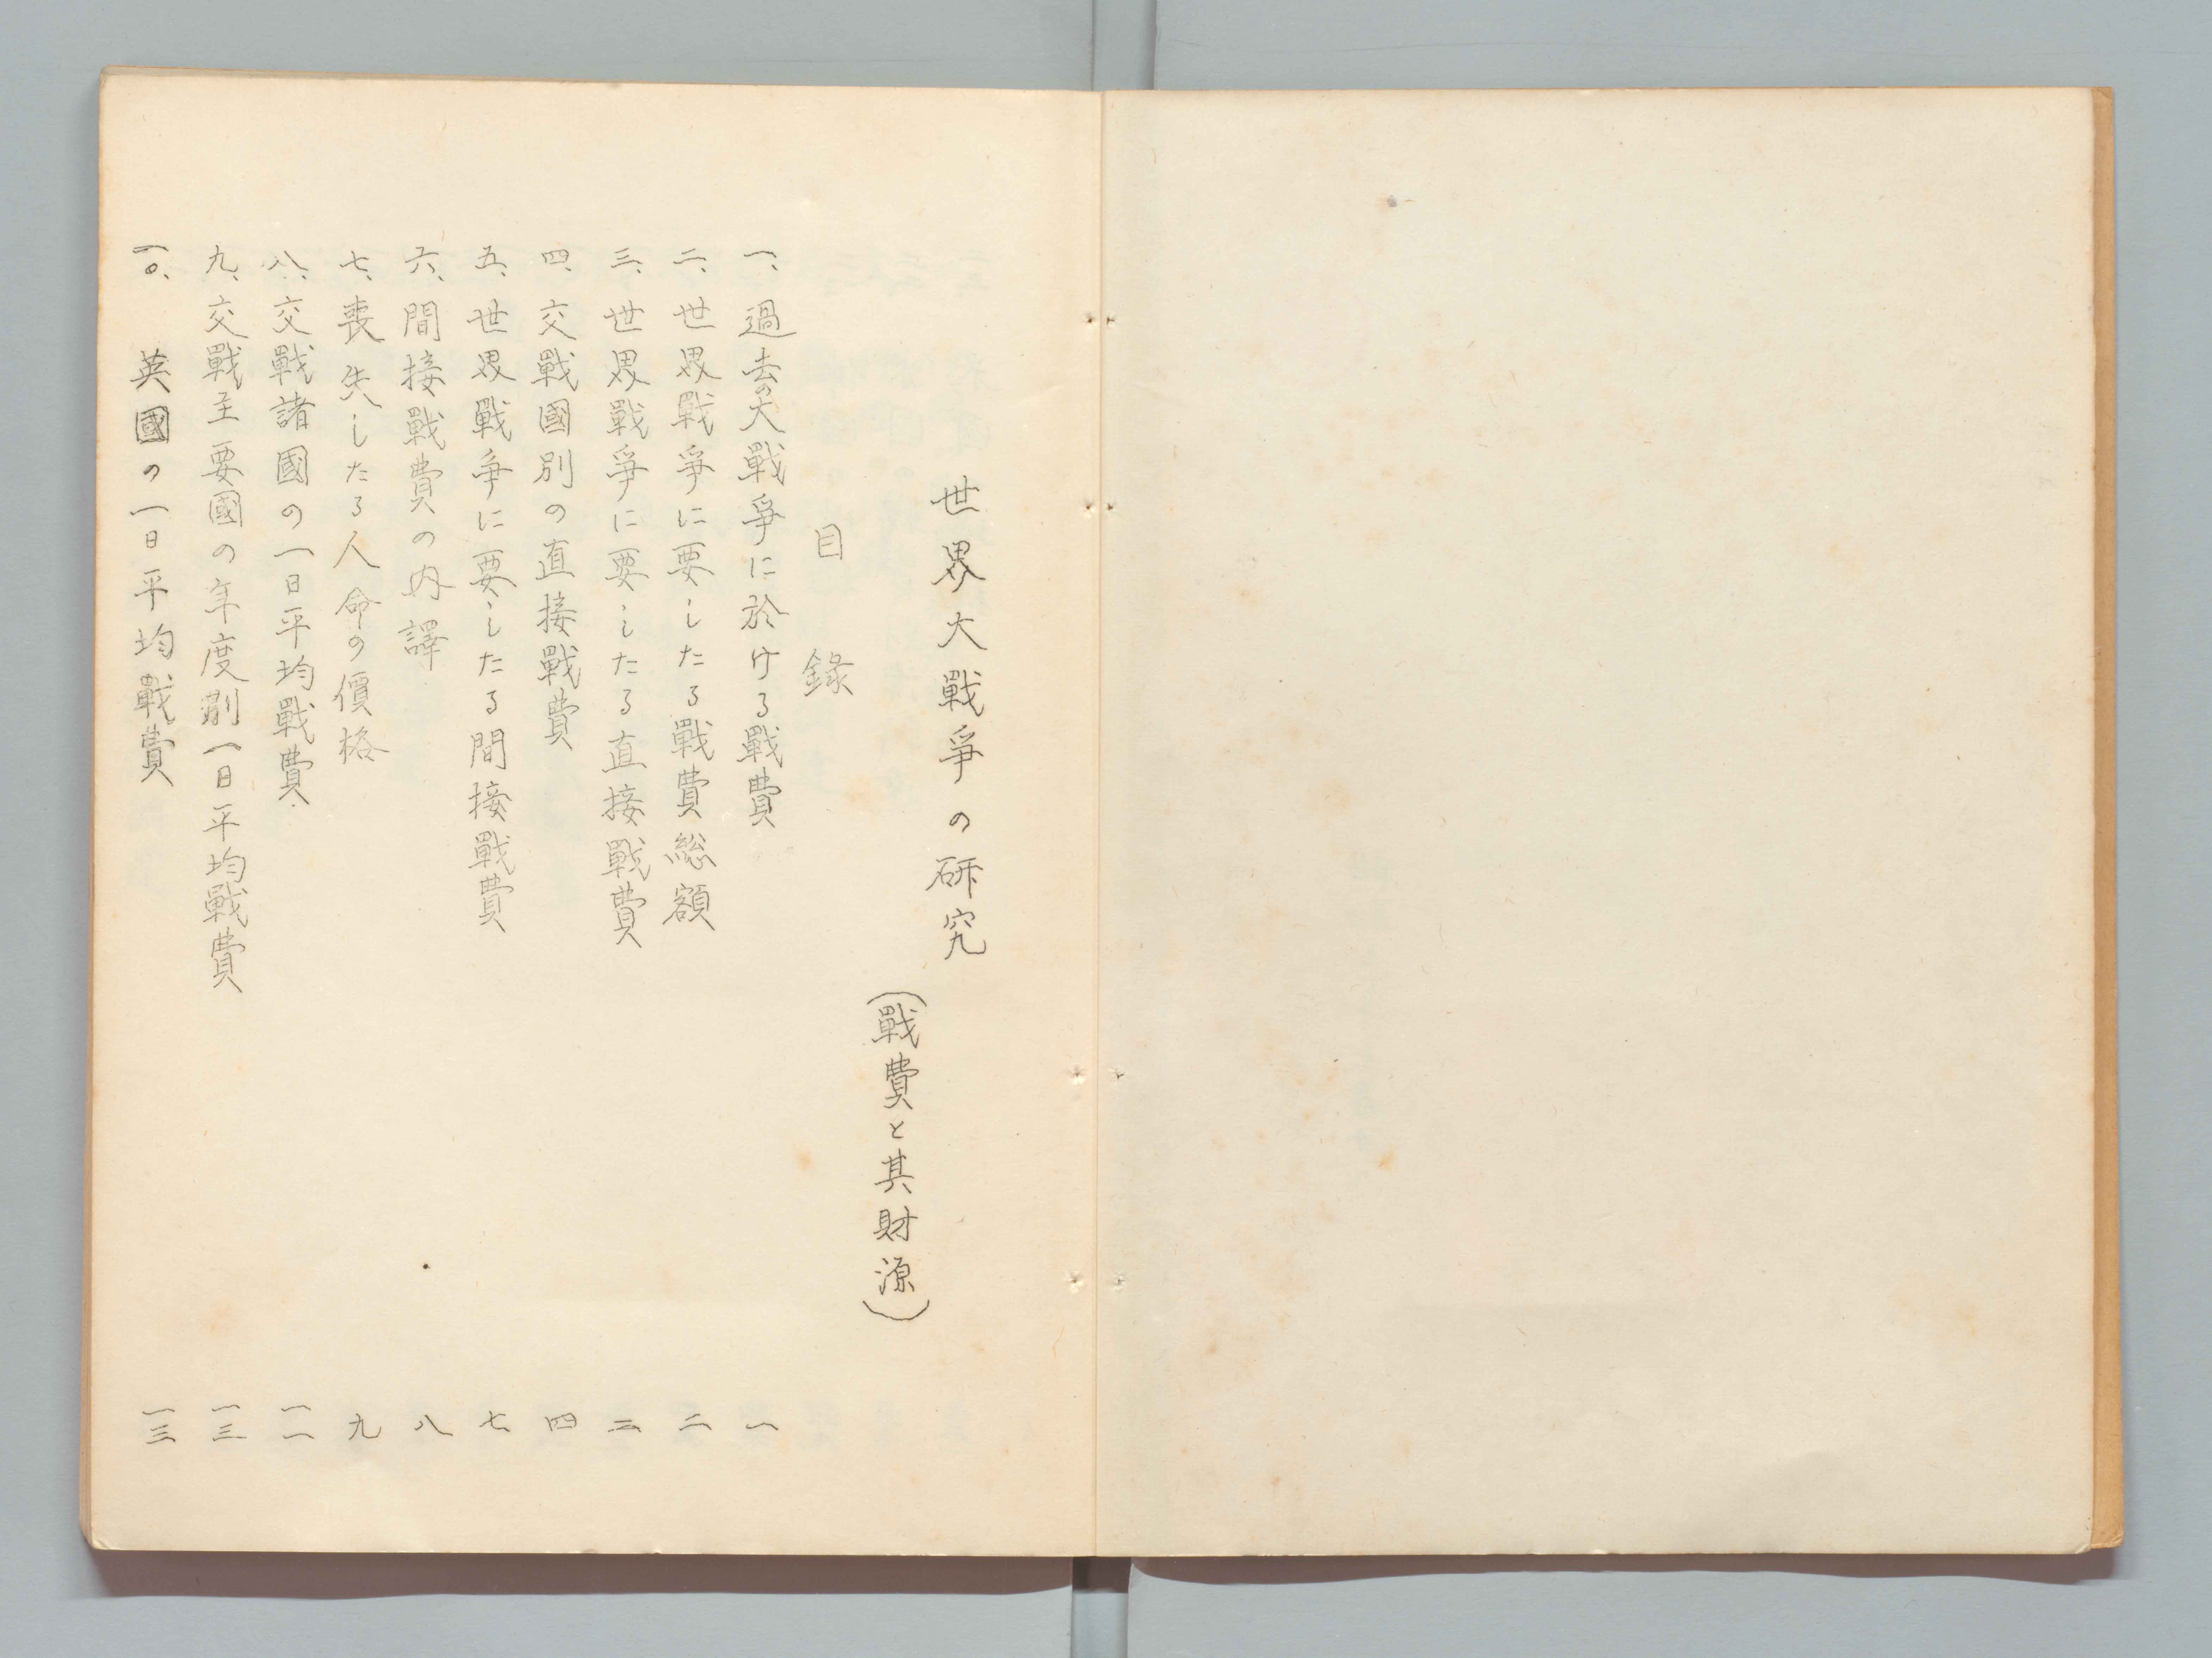 世界大戰爭の研究
（戰費と其財源）
目錄
一、過去の大戰爭に於ける戰費 一
二、世界戰爭に要したる戰費総額 二
三、世界戰爭に要したる直接戰費 二
四、交戰國別の直接戰費 四
五、世界戰爭に要したる間接戰費 七
六、間接戰費の内譯 八
七、喪失したる人命の價格 九
八、交戰諸國の一日平均戰費 一一
九、交戰主要國の年度別一日平均戰費 一三
一〇、英國の一日平均戰費 一三